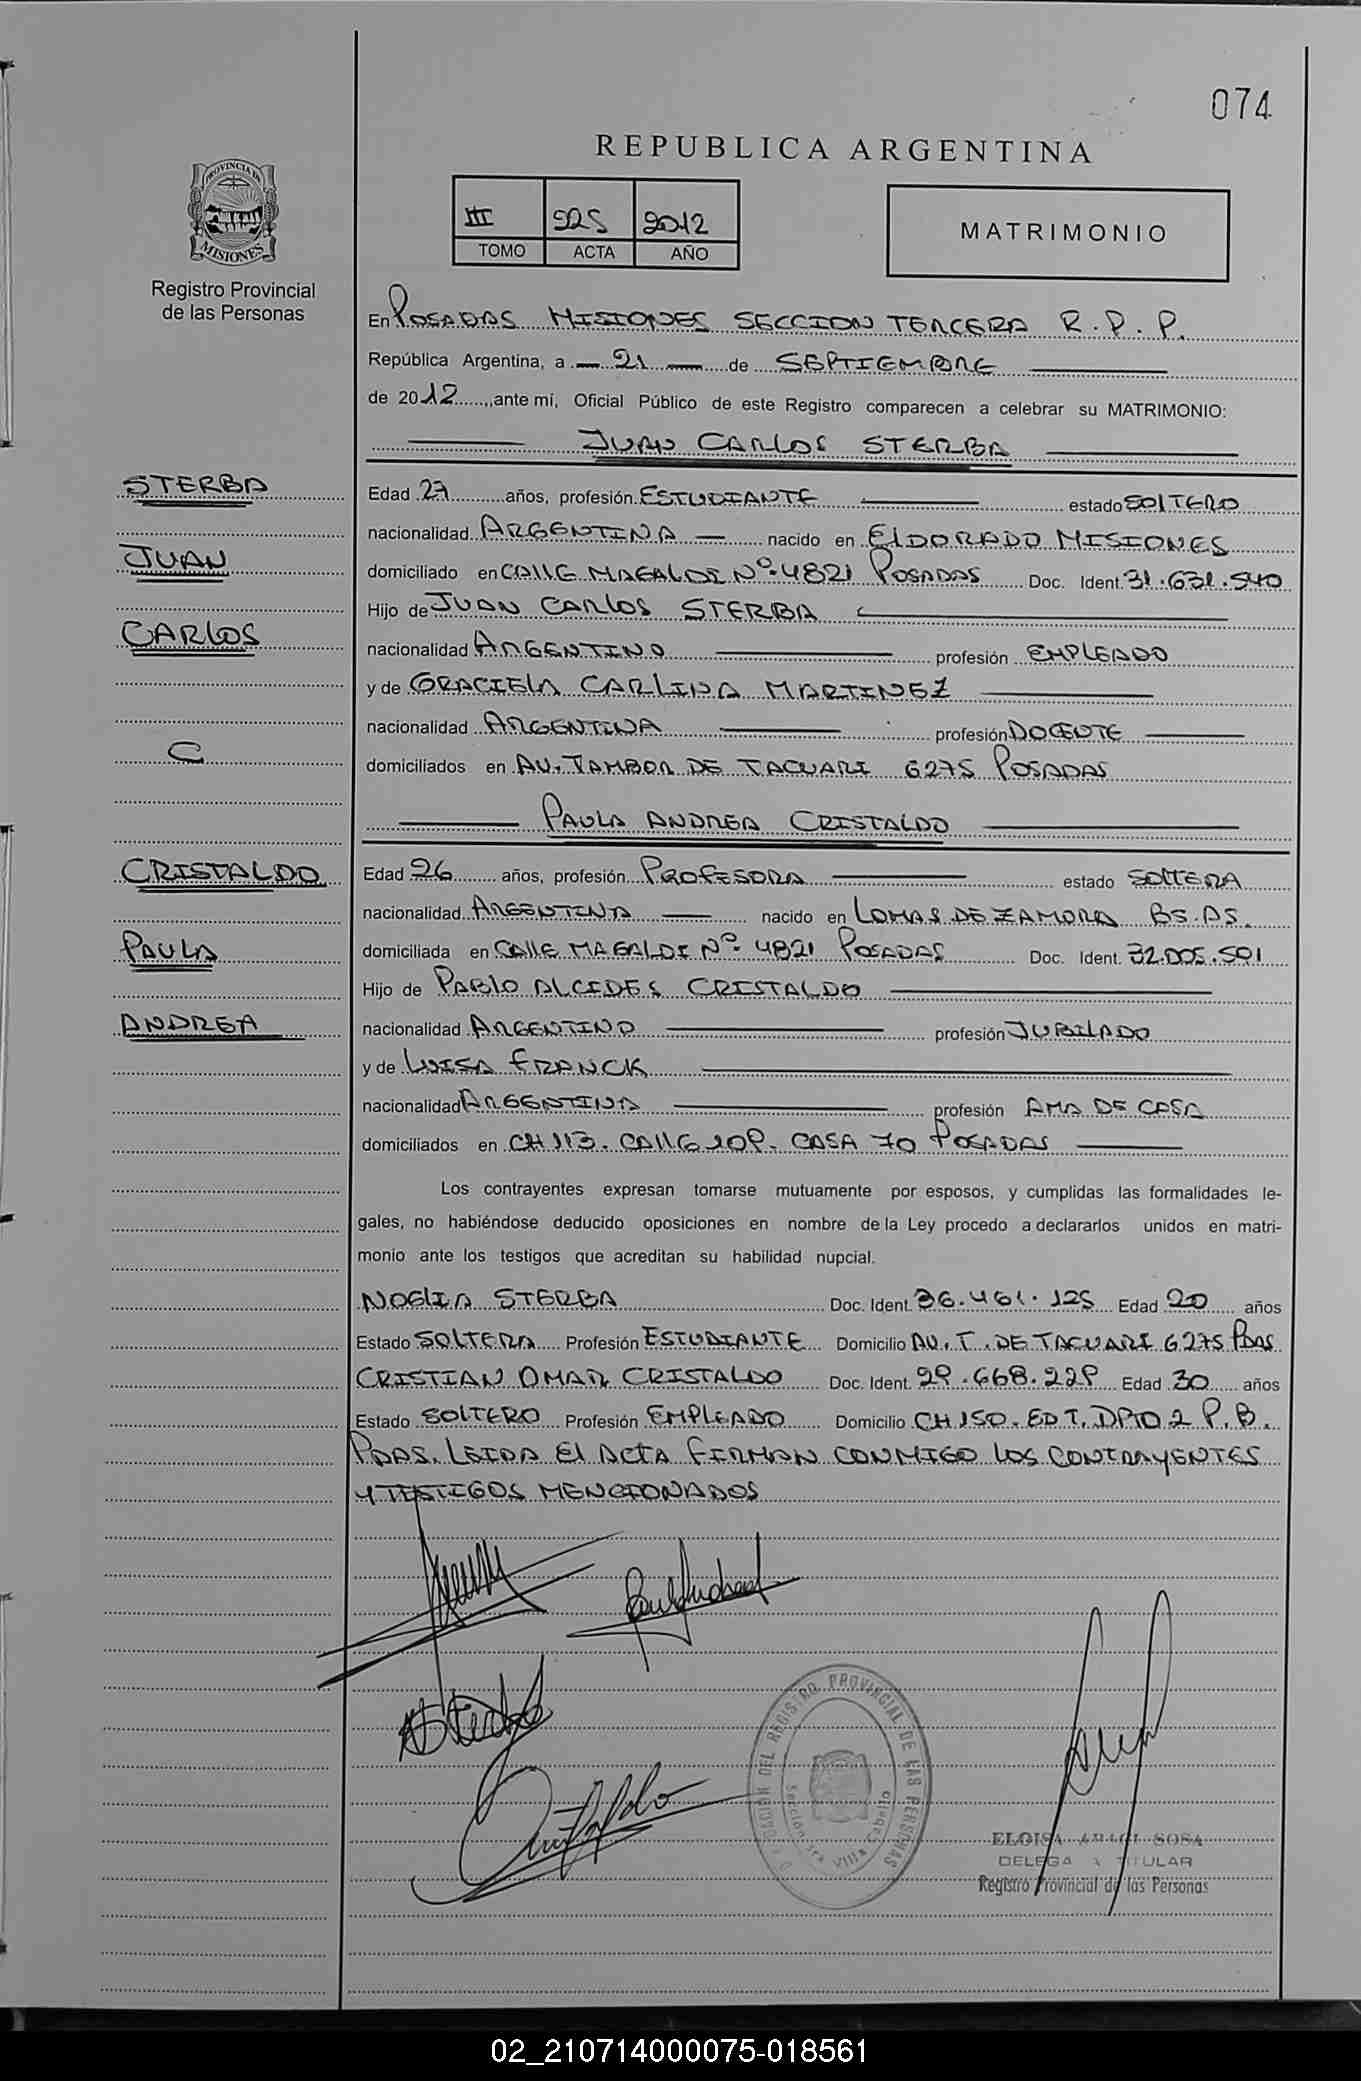 074
REPUBLICA ARGENTINA
PROVINCIA DE MISIONES
Registro Provincial
de las Personas
III 525 2012
TOMO ACTA AÑO
MATRIMONIO
En POSADAS MISIONES SECCION TERCERA R.P.P.
República Argentina, a 21 de SEPTIEMBRE
de 2012, ante mí, Oficial Público de este Registro comparecen a celebrar su MATRIMONIO:
JUAN CARLOS STERBA
STERBA
JUAN
CARLOS
C
Edad 27 años, profesión ESTUDIANTE estado SOLTERO
nacionalidad ARGENTINA nacido en ELDORADO MISIONES
domiciliado en CALLE MAGALDI Nº 4821 POSADAS Doc. Ident. 31.631.540
Hijo de JUAN CARLOS STERBA
nacionalidad ARGENTINO profesión EMPLEADO
y de GRACIELA CARLINA MARTINEZ
nacionalidad ARGENTINA profesión DOCENTE
domiciliados en AV. TAMBOR DE TACUARI 6275 POSADAS
PAULA ANDREA CRISTALDO
CRISTALDO
PAULA
ANDREA
Edad 26 años, profesión PROFESORA estado SOLTERA
nacionalidad ARGENTINA nacido en LOMAS DE ZAMORA BS.AS.
domiciliada en CALLE MAGALDI Nº 4821 POSADAS Doc. Ident. 32.005.501
Hijo de PABLO ALCIDES CRISTALDO
nacionalidad ARGENTINO profesión JUBILADO
y de LUISA FRANCK
nacionalidad ARGENTINA profesión AMA DE CASA
domiciliados en CH 113. CALLE 109. CASA 70 POSADAS
Los contrayentes expresan tomarse mutuamente por esposos, y cumplidas las formalidades le-
gales, no habiéndose deducido oposiciones en nombre de la Ley procedo a declararlos unidos en matri-
monio ante los testigos que acreditan su habilidad nupcial.
NOELIA STERBA Doc. Ident. 36.461.125 Edad 20 años
Estado SOLTERA Profesión ESTUDIANTE Domicilio AV. T. DE TACUARI 6275 PDAS
CRISTIAN OMAR CRISTALDO Doc. Ident. 29.668.229 Edad 30 años
Estado SOLTERO Profesión EMPLEADO Domicilio CH 150. ED T. DPTO 2 P.B.
PDAS. LEIDA EL ACTA FIRMAN CONMIGO LOS CONTRAYENTES
Y TESTIGOS MENCIONADOS
DEL REGISTRO PROVINCIAL DE LAS PERSONAS
Sección 3ra Villa Cabello
ELOISA SOSA
DELEGADA TITULAR
Registro Provincial de las Personas
02_210714000075-018561